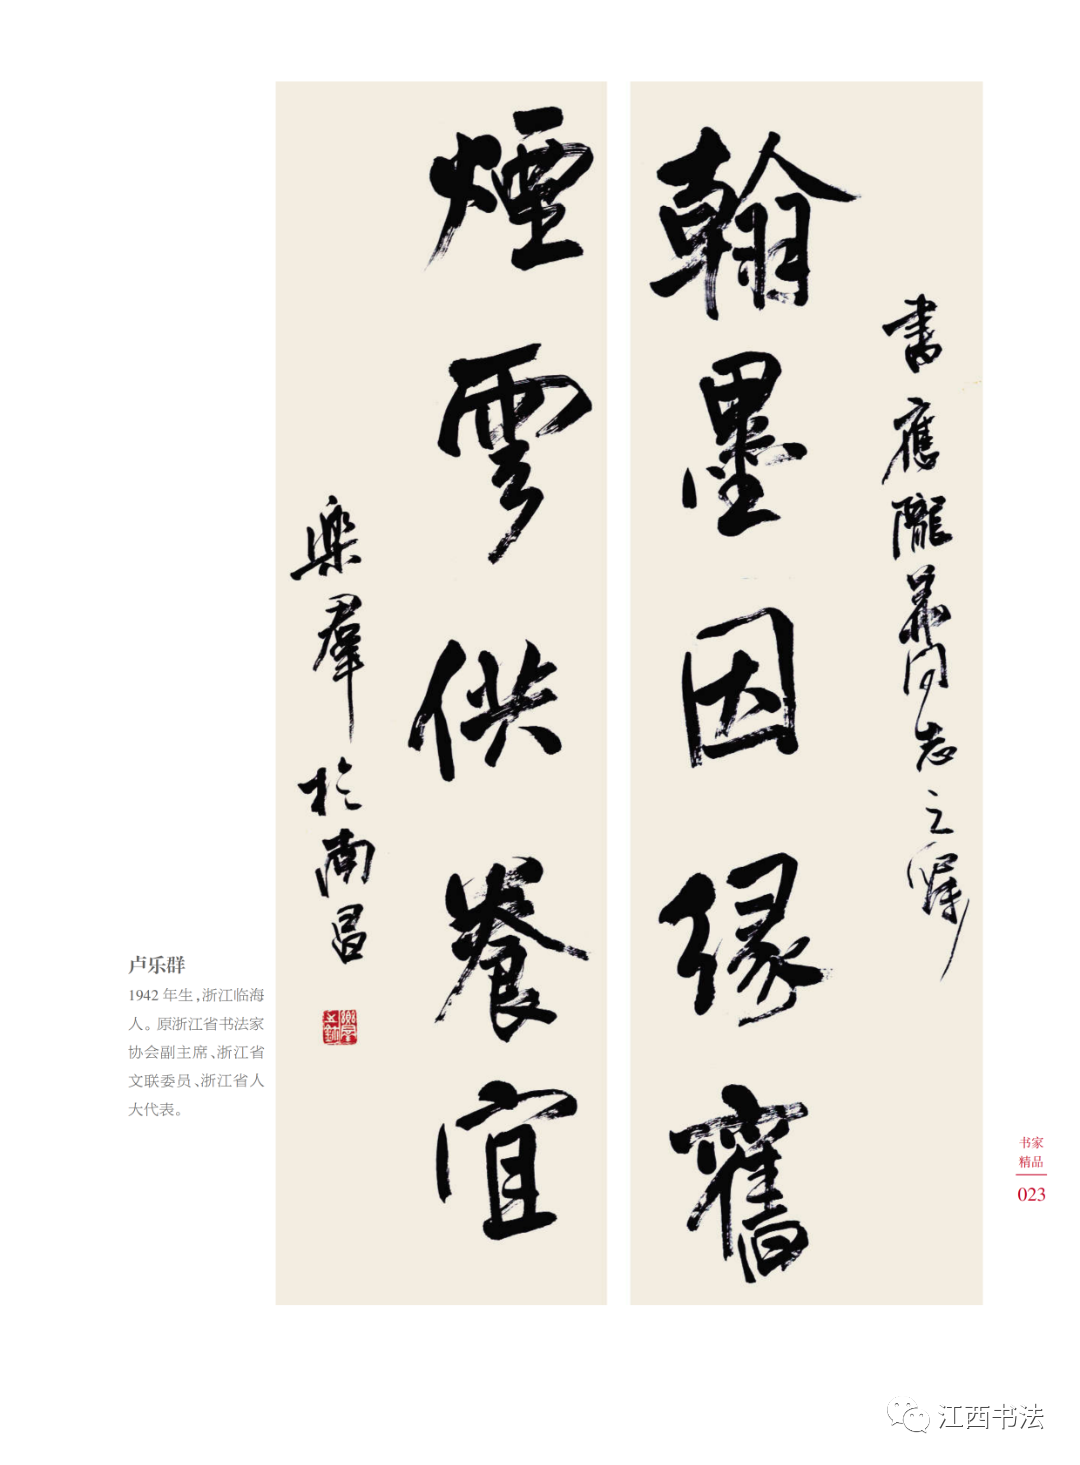 書應隴同志之囑
翰墨因緣舊
煙雲供養宜
樂羣於南昌
卢乐群
1942 年生，浙江临海
人。原浙江省书法家
协会副主席、浙江省
文联委员、浙江省人
大代表。
书家
精品
023
江西书法